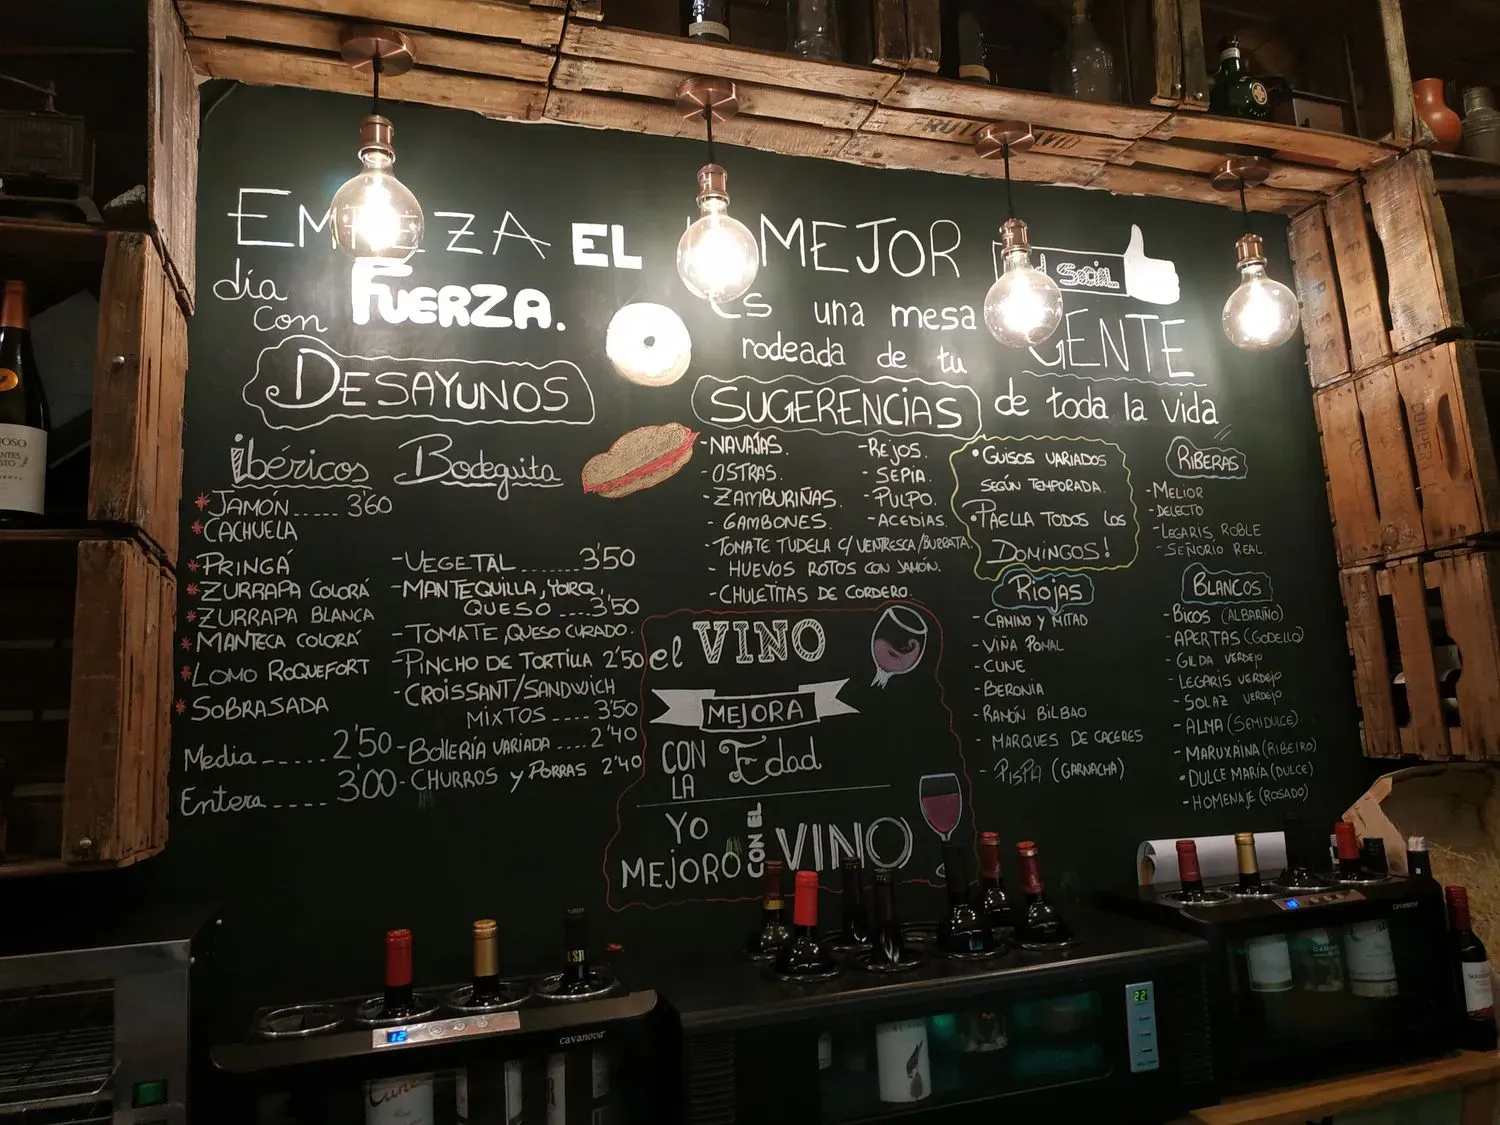 EMPIEZA EL
día
con FUERZA.
DESAYUNOS
Ibéricos Bodeguita
* JAMÓN..... 3'60
* CACHUELA
* PRINGÁ
* ZURRAPA COLORÁ
* ZURRAPA BLANCA
* MANTECA COLORÁ
* LOMO ROQUEFORT
* SOBRASADA
Media ----- 2'50
Entera ---- 3'00
- VEGETAL ....... 3'50
- MANTEQUILLA, YORQ.,
QUESO .... 3'50
- TOMATE, QUESO CURADO.
- PINCHO DE TORTILLA 2'50
- CROISSANT/SANDWICH
MIXTOS .... 3'50
- BOLLERÍA VARIADA .... 2'40
- CHURROS y PORRAS 2'40
MEJOR
Social
es una mesa
rodeada de tu GENTE
de toda la vida
SUGERENCIAS
- NAVAJAS.
- OSTRAS.
- ZAMBURIÑAS.
- GAMBONES.
- REJOS.
- SEPIA.
- PULPO.
- ACEDIAS.
- TOMATE TUDELA C/ VENTRESCA/BURRATA.
- HUEVOS ROTOS CON JAMÓN.
- CHULETITAS DE CORDERO.
• GUISOS VARIADOS
SEGÚN TEMPORADA.
• PAELLA TODOS LOS
DOMINGOS!
el VINO
MEJORA
CON LA Edad
YO
MEJORO CON EL VINO
RIOJAS
- CAMINO Y MITAD
- VIÑA POMAL
- CUNE
- BERONIA
- RAMÓN BILBAO
- MARQUES DE CACERES
- PISPA (GARNACHA)
RIBERAS
- MELIOR
- DELECTO
- LEGARIS, ROBLE
- SEÑORIO REAL.
BLANCOS
- BICOS (ALBARIÑO)
- APERTAS (GODELLO)
- GILDA VERDEJO
- LEGARIS VERDEJO
- SOLAZ VERDEJO
- ALMA (SEMIDULCE)
- MARUXAINA (RIBEIRO)
• DULCE MARÍA (DULCE)
- HOMENAJE (ROSADO)
12
cavanova
22
cavanova